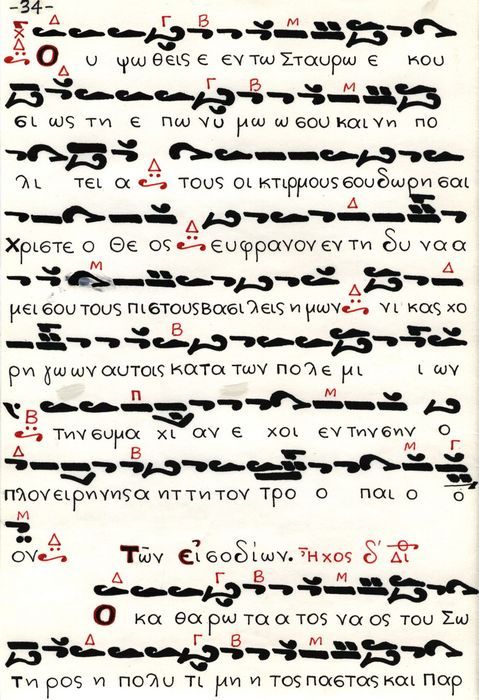 -34-
Δ Γ Β Μ
Ο υ ψω θεις ε εν τω Σταυρω ε κου
Δ Γ Β Μ
σι ως τη ε πω νυ μω ω σου και νη πο
λι τει α Δ τους οι κτιρμους σου δωρη σαι
Δ
Χριστε ο Θε ος Δ ευφρανον εν τη δυ να α
Μ Δ
μει σου τους πιστους βασι λεις η μων Δ νι κας χο
Β
ρη γω ων αυτοις κατα των πολε μι ι ων
Π Μ
Β την συμα χι αν ε χοι εν την σην ο
Δ Β Μ Γ
πλον ειρηνης α ηττητον τρο ο παι ο ο
Μ
ον Δ Τῶν εἰσοδίων. Ἦχος δ' Δι
Δ Γ Β Μ
Ο κα θαρω τα α τος να ος του Σω
Δ Γ Β Μ
τη ρος η πολυ τι μη η τος παστας και παρ